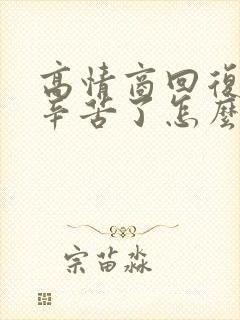 高情商回復
辛苦了怎麼
宗苗淼